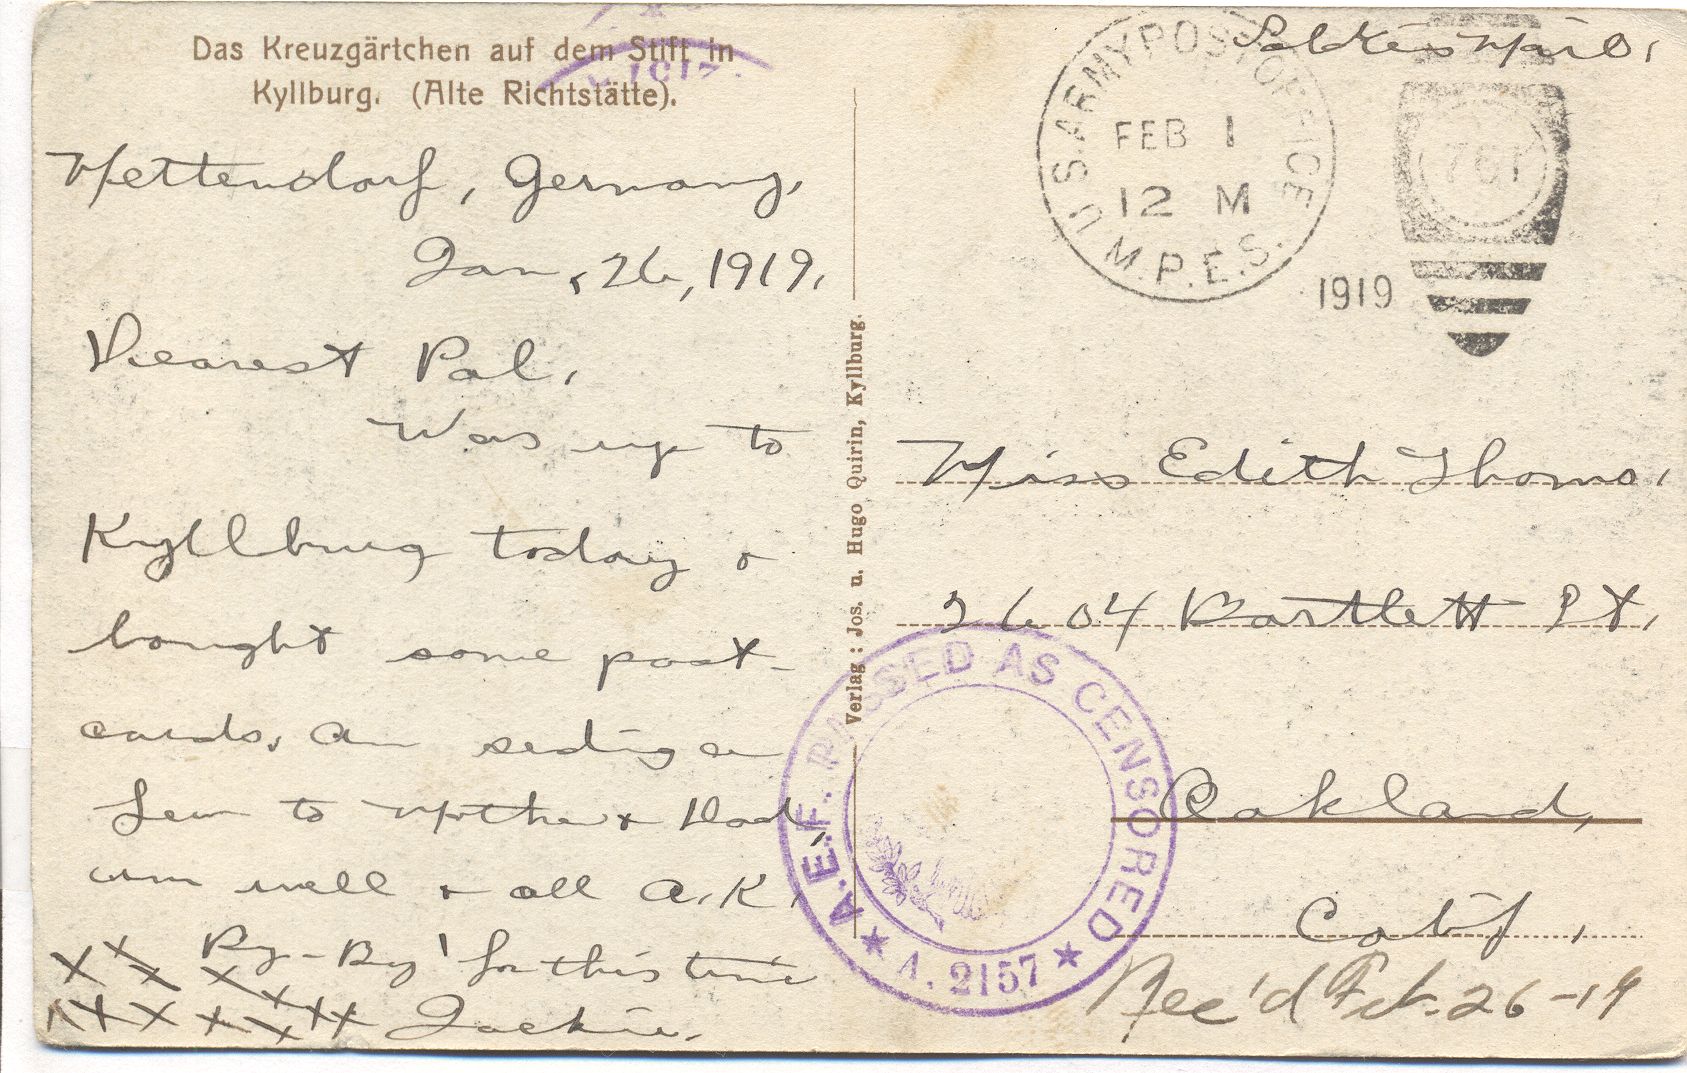 Das Kreuzgärtchen auf dem Stift in
Kyllburg. (Alte Richtstätte).
Mettendorf, Germany,
Jan. 26, 1919.
Dearest Pal,
Was up to
Kyllburg today &
bought some post-
cards. Am seding a
few to Mother & Dad,
am well & all O.K.
By-By! for this time
Jackie.
X X X X X X X
X X X X X X X
Verlag: Jos. u. Hugo Quirin, Kyllburg.
Soldiers Mail.
U.S. ARMY POST OFFICE
M.P.E.S.
FEB 1
12 M
1919
761
Miss Edith Thoms,
2604 Bartlett St,
Oakland,
Calif,
Rec'd Feb. 26-19
A.E.F. PASSED AS CENSORED
A. 2157